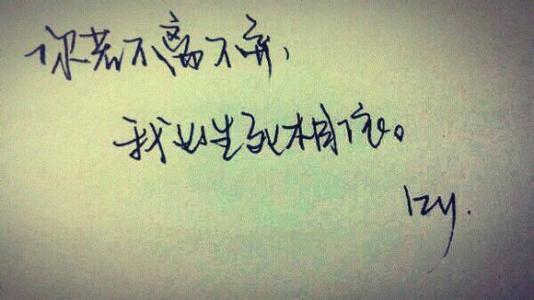 你若不离不弃，
我必生死相依。
lzy.